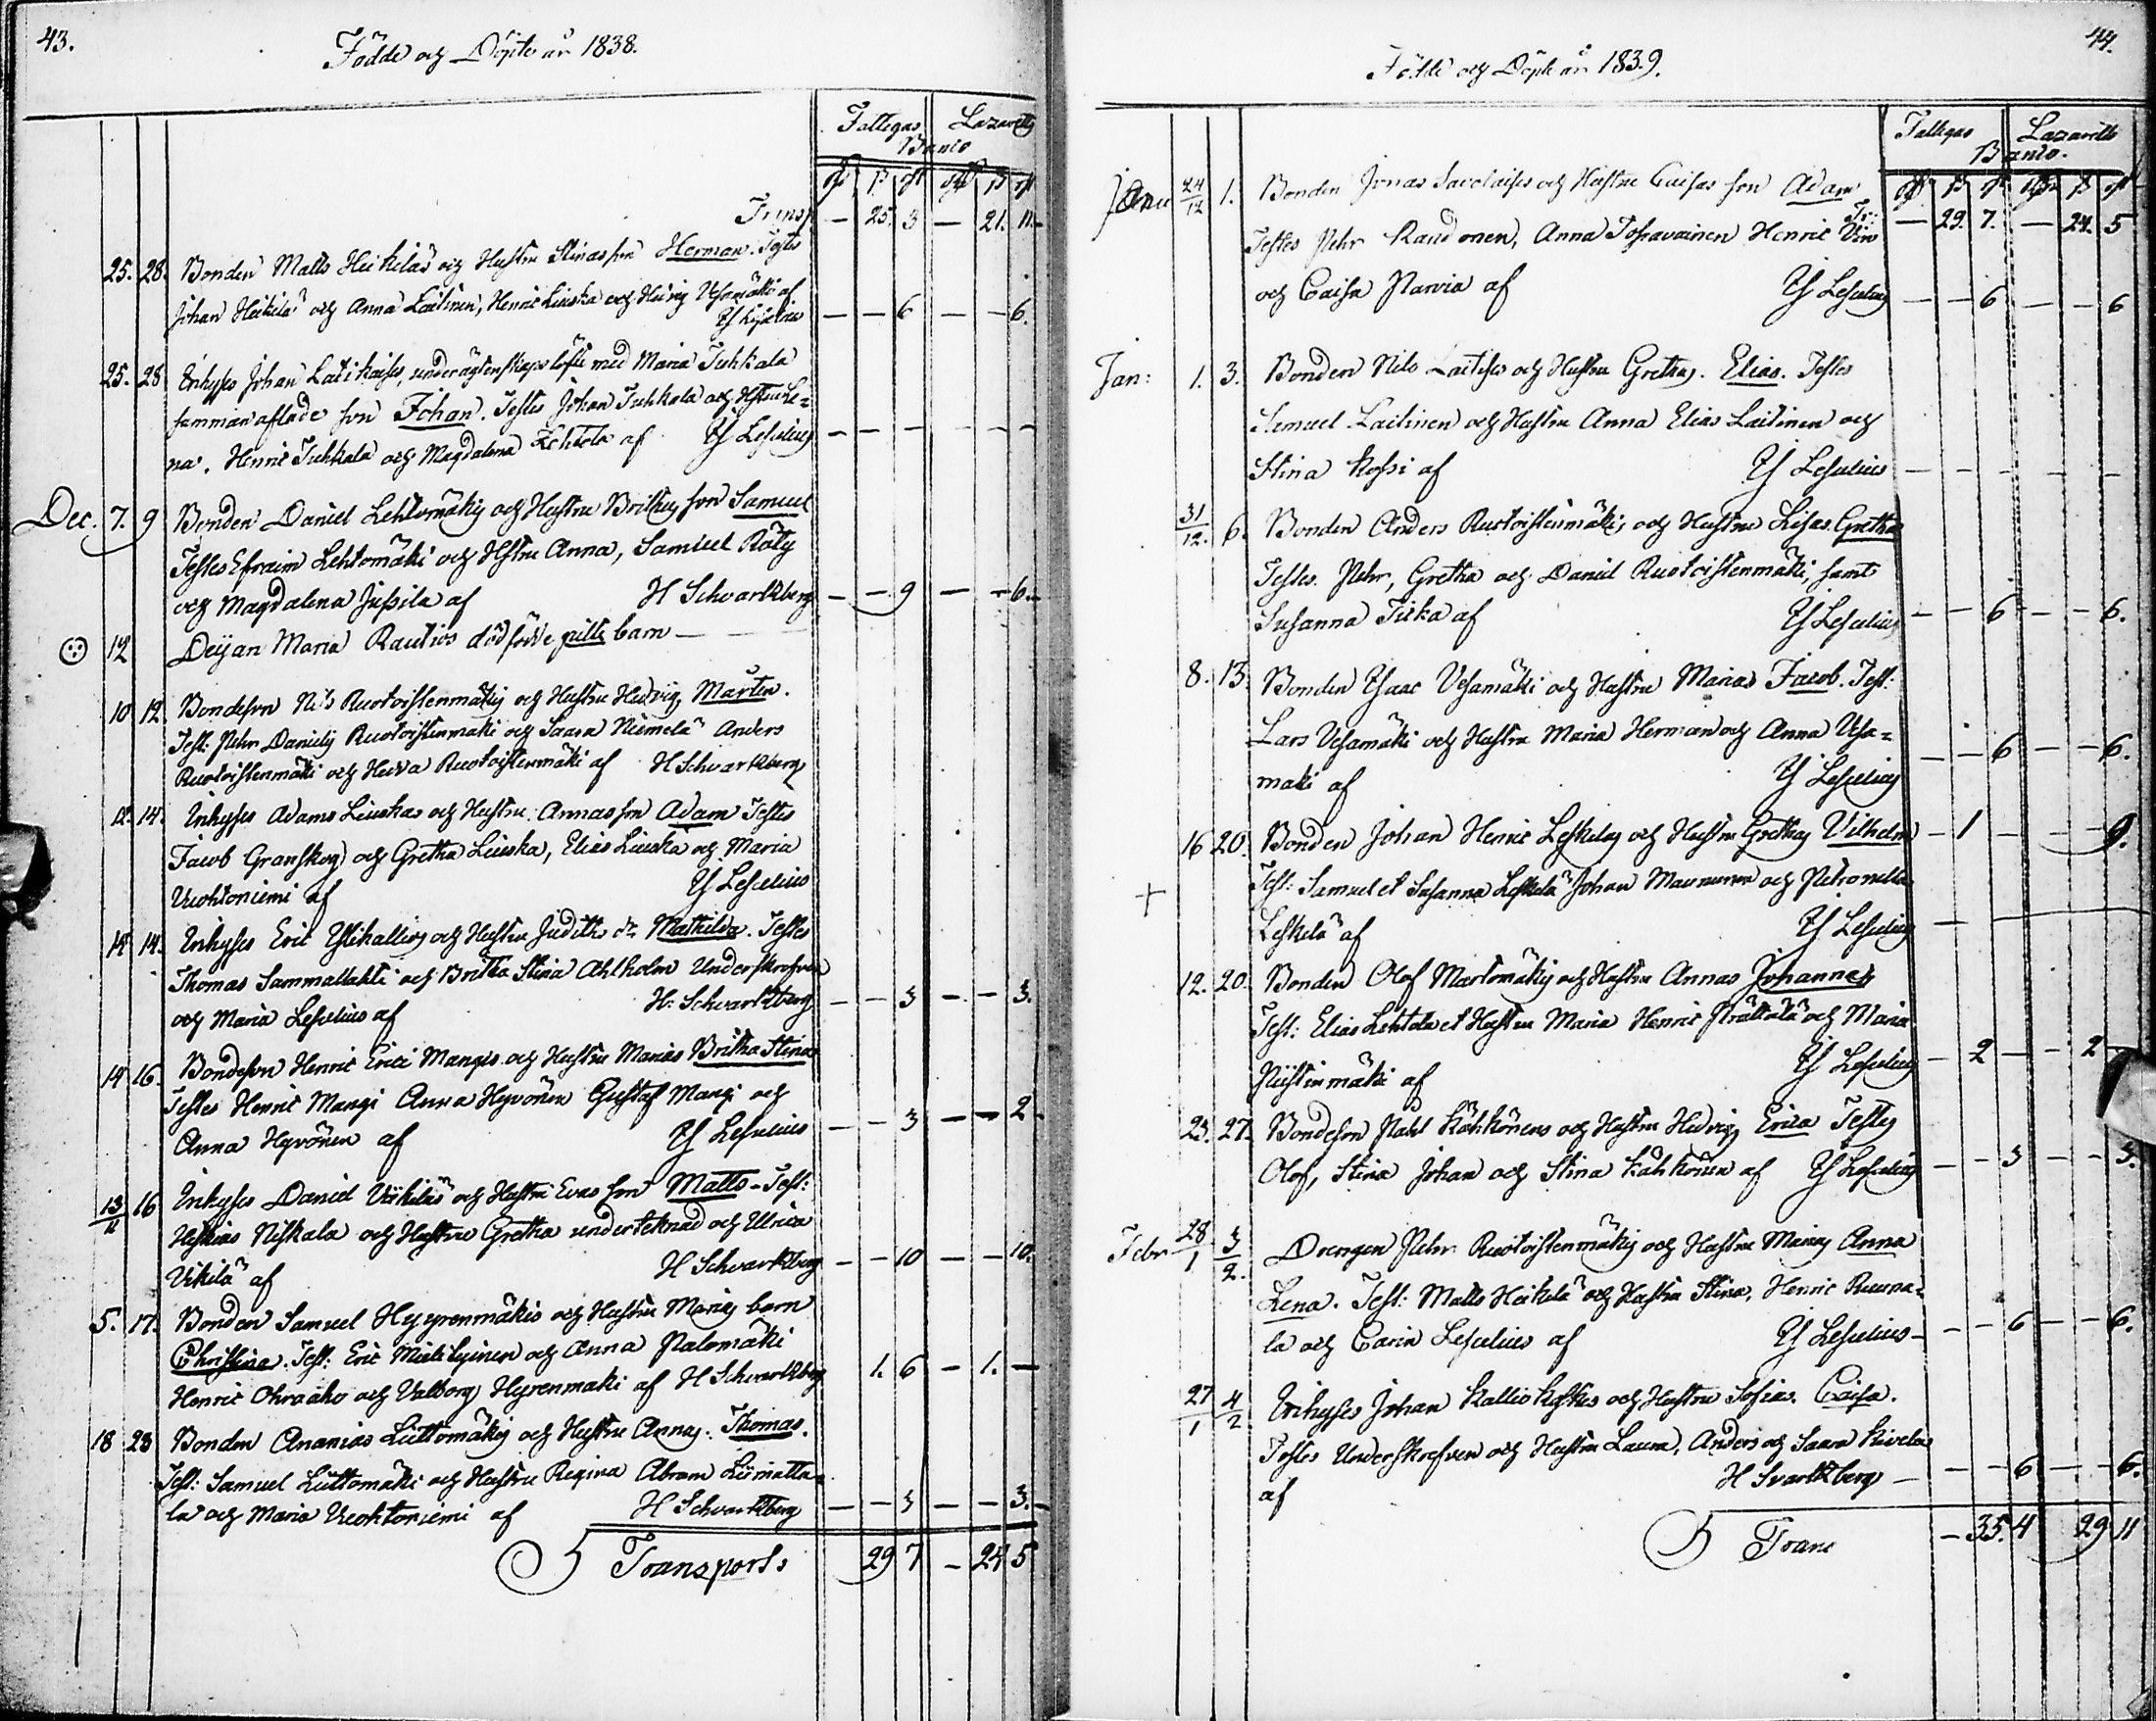 43.
Födde och Döpte år 1838.
Fattigas Lazaretts
Banco
Transp — 25. 3 — 21. 11.
25. 28. Bonden Matts Heikiläs och Hustru Stinas son Herman. Testes
Johan Heikilä och Anna Laitinen, Henric Liuska och Hedvig Vesamäki af
— — 6 — — 6.
25. 28 Inhyses Johan Laitikaises, under ägtenskaps löfte med Maria Tuhkala
samman aflade son Johan. Testes Johan Tuhkala och Hustru Le=
na, Henric Tuhkala och Magdalena Lehtola af Ys Leselius — — — — — —
Dec. 7. 9 Bonden Daniel Lehtomäkis och Hustru Brithas son Samuel
Testes Efraim Lehtomäki och Hstru Anna, Samuel Räty
och Magdalena Jussila af H Schvartzberg — — 9 — — 6.
12 Deijan Maria Rautios dödfödde barn —
10 12 Bondeson Nils Ruotoistenmäkis och Hustru Hedvigs Mårten.
Test: Pehr Daniels Ruotoistenmäki och Saara Niemelä Anders
Ruotoistenmäki och Hedda Ruotoistenmäki af H Schvartzberg
12. 14. Inhyses Adams Liuskas och Hustru Annas son Adam Testes
Jacob Granskog och Gretha Liuska, Elias Liuska och Maria
Vuohtoniemi af Ys Leselius
14 14. Inhyses Eric Ylikallios och Hustru Judiths dr Mathilda. Testes
Thomas Sammallahti och Britha Stina Ahlholm Underskrefven
och Maria Leselius af H: Schvartzberg — — 3 — — 3.
14 16. Bondeson Henric Erici Mangis och Hustru Marias Britha Stina
Testes Henric Mangi Anna Hyvönen Gustaf Mangi och
Anna Hyvönen af Ys Leselius — — 3 — — 2
13/11 16 Inhyses Daniel Viikiläs och Hustru Evas son Matts. Test:
Heskias Niskala och Hustru Gretha undertecknad och Ulrica
Vikilä af H Schvartzberg — — 10 — — 10.
5. 17. Bonden Samuel Hyyrenmäkis och Hustru Marias barn
Christina. Test: Eric Mielityinen och Anna Palomäki
Henric Ohraaho och Valborg Hyrenmäki af H Schvartzberg 1. 6 — 1. —
18 23 Bonden Ananias Liittomäkis och Hustru Annas. Thomas.
Test: Samuel Liittomäki och Hustru Regina Abram Liimatta=
la och Maria Vuohtoniemi af H Schvartzberg — — 3 — — 3.
Transports 29 7 — 24 5
44.
Födde och Döpte år 1839.
Fattigas Lazaretts
Banco.
Janu 24/12 1. Bonden Jonas Savolaises och Hustru Caisas son Adam
Tr: — 29. 7. — 24. 5
Testes Pehr Raudonen, Anna Tossavainen Henric
och Caisa Parvia af Ys Leselius — — 6 — — 6
Jan: 1. 3. Bonden Nils Laitises och Hustru Grethas. Elias. Testes
Samuel Laitinen och Hustru Anna Elias Laitinen och
Stina Kossi af Ys Leselius — — — — — —
31/12. 6. Bonden Anders Ruotoistenmäkis och Hustru Lisas Gretha
Testes. Pehr, Gretha och Daniel Ruotoistenmäki, samt
Susanna Tiska af Ys Leselius — — 6 — — 6.
8. 13. Bonden Ysaac Vesamäki och Hustru Marias Jacob. Test:
Lars Vesamäki och Hustru Maria Herman och Anna Vesa=
maki af Ys Leselius — — 6 — — 6.
16 20. Bonden Johan Henric Leskeläs och Hustru Grethas Vilhelm — 1 — — — 9.
+ Test: Samuel et Susanna Leskelä Johan Maununen och Petronella
Leskelä af Ys Leselius
12. 20. Bonden Olof Martomäkis och Hustru Annas Johannes
Test: Elias Lehtola et Hustru Maria Henric Prättälä och Maria
Piistinmäki af Ys Leselius — 2 — — 2 —
23. 27. Bondeson Påhl Kähkönens och Hustru Hedvigs Erica Testes
Olof, Stina Johan och Stina Kähkönen af Ys Leselius — — 3 — — 3.
Febr 28/1 3/2. Drengen Pehr Ruotoistenmäkis och Hustru Marias Anna
Lena. Test: Matts Heikilä och Hustru Stina, Henric Ruuna=
la och Carin Leselius af Ys Leselius — — 6 — — 6.
27/1 4/2 Inhyses Johan Kallio Koskis och Hustru Sofias. Caisa.
Testes Underskrefven och Hustru Laura, Anders och Saara Kivela
af H Svartzberg — — — 6 — — 6.
Trans — 35. 4 29 11